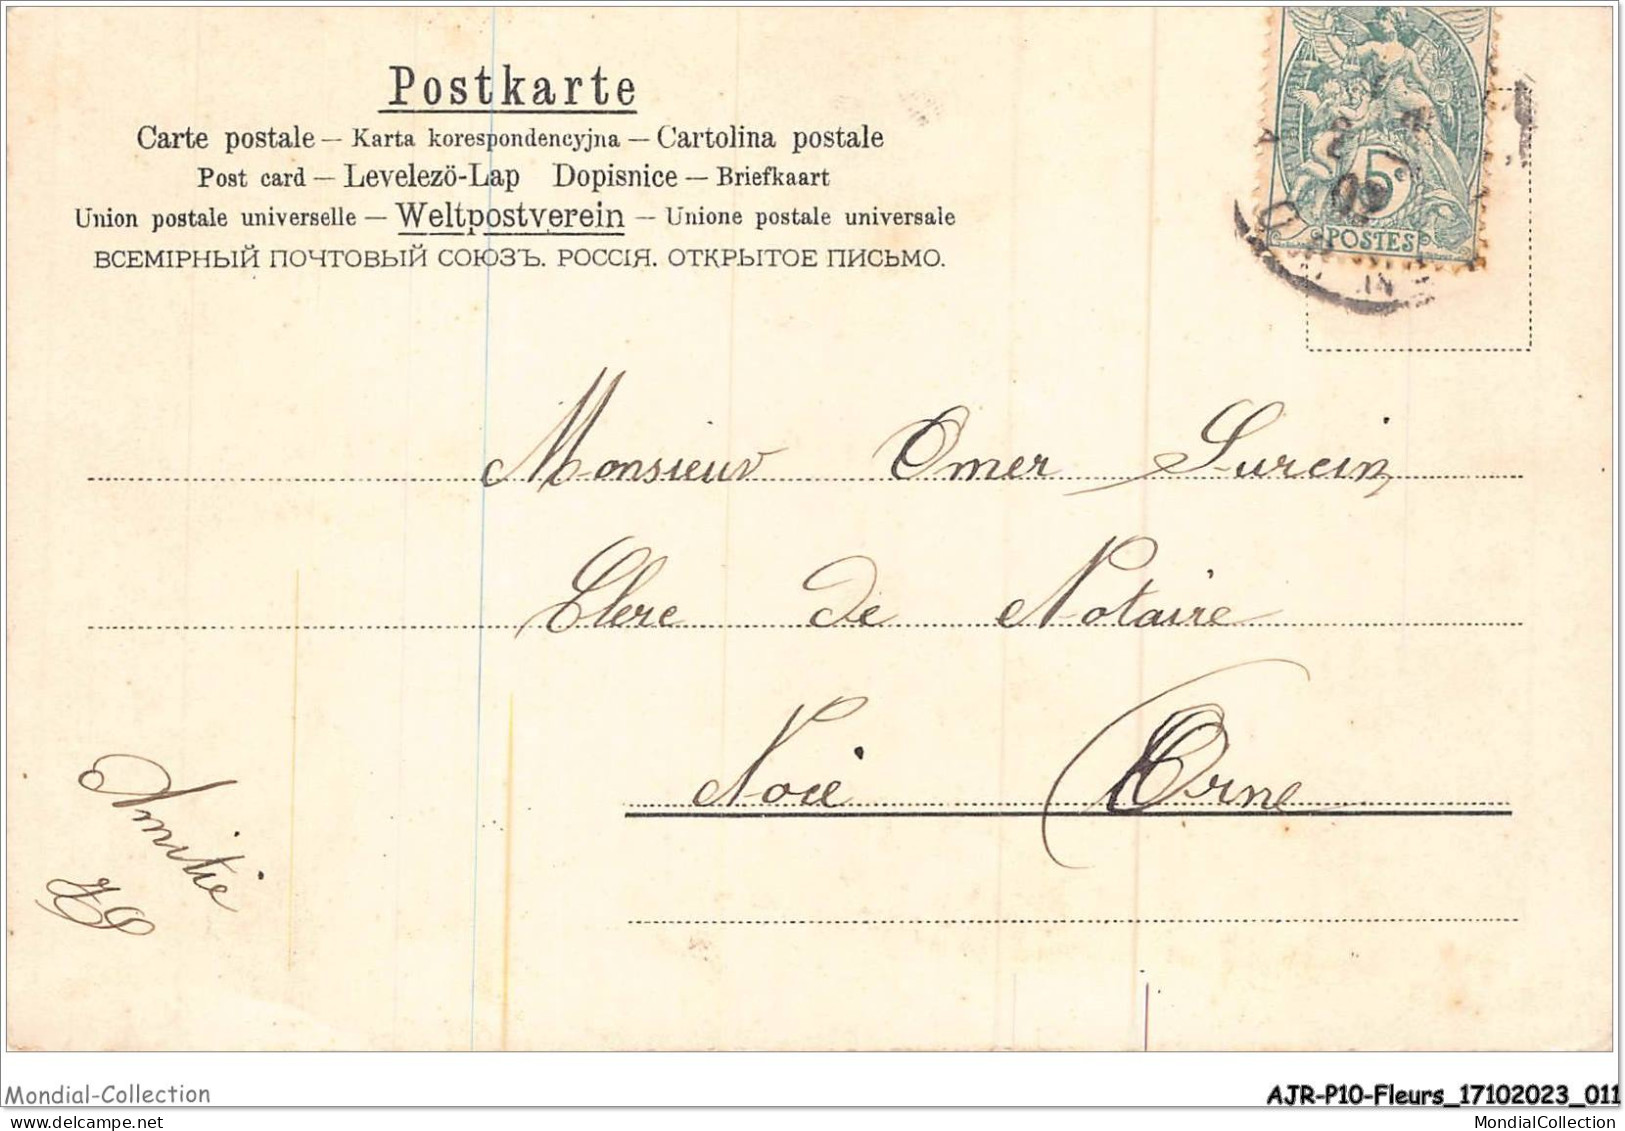 Postkarte
Carte postale — Karta korespondencyjna — Cartolina postale
Post card — Levelezö-Lap Dopisnice — Briefkaart
Union postale universelle — Weltpostverein — Unione postale universale
ВСЕМІРНЫЙ ПОЧТОВЫЙ СОЮЗЪ. РОССІЯ. ОТКРЫТОЕ ПИСЬМО.
5
POSTES
Monsieur Omer Surcin
Clerc de Notaire
Noce Orne
Amitié
Mondial-Collection
AJR-P10-Fleurs_17102023_011
www.delcampe.net
MondialCollection